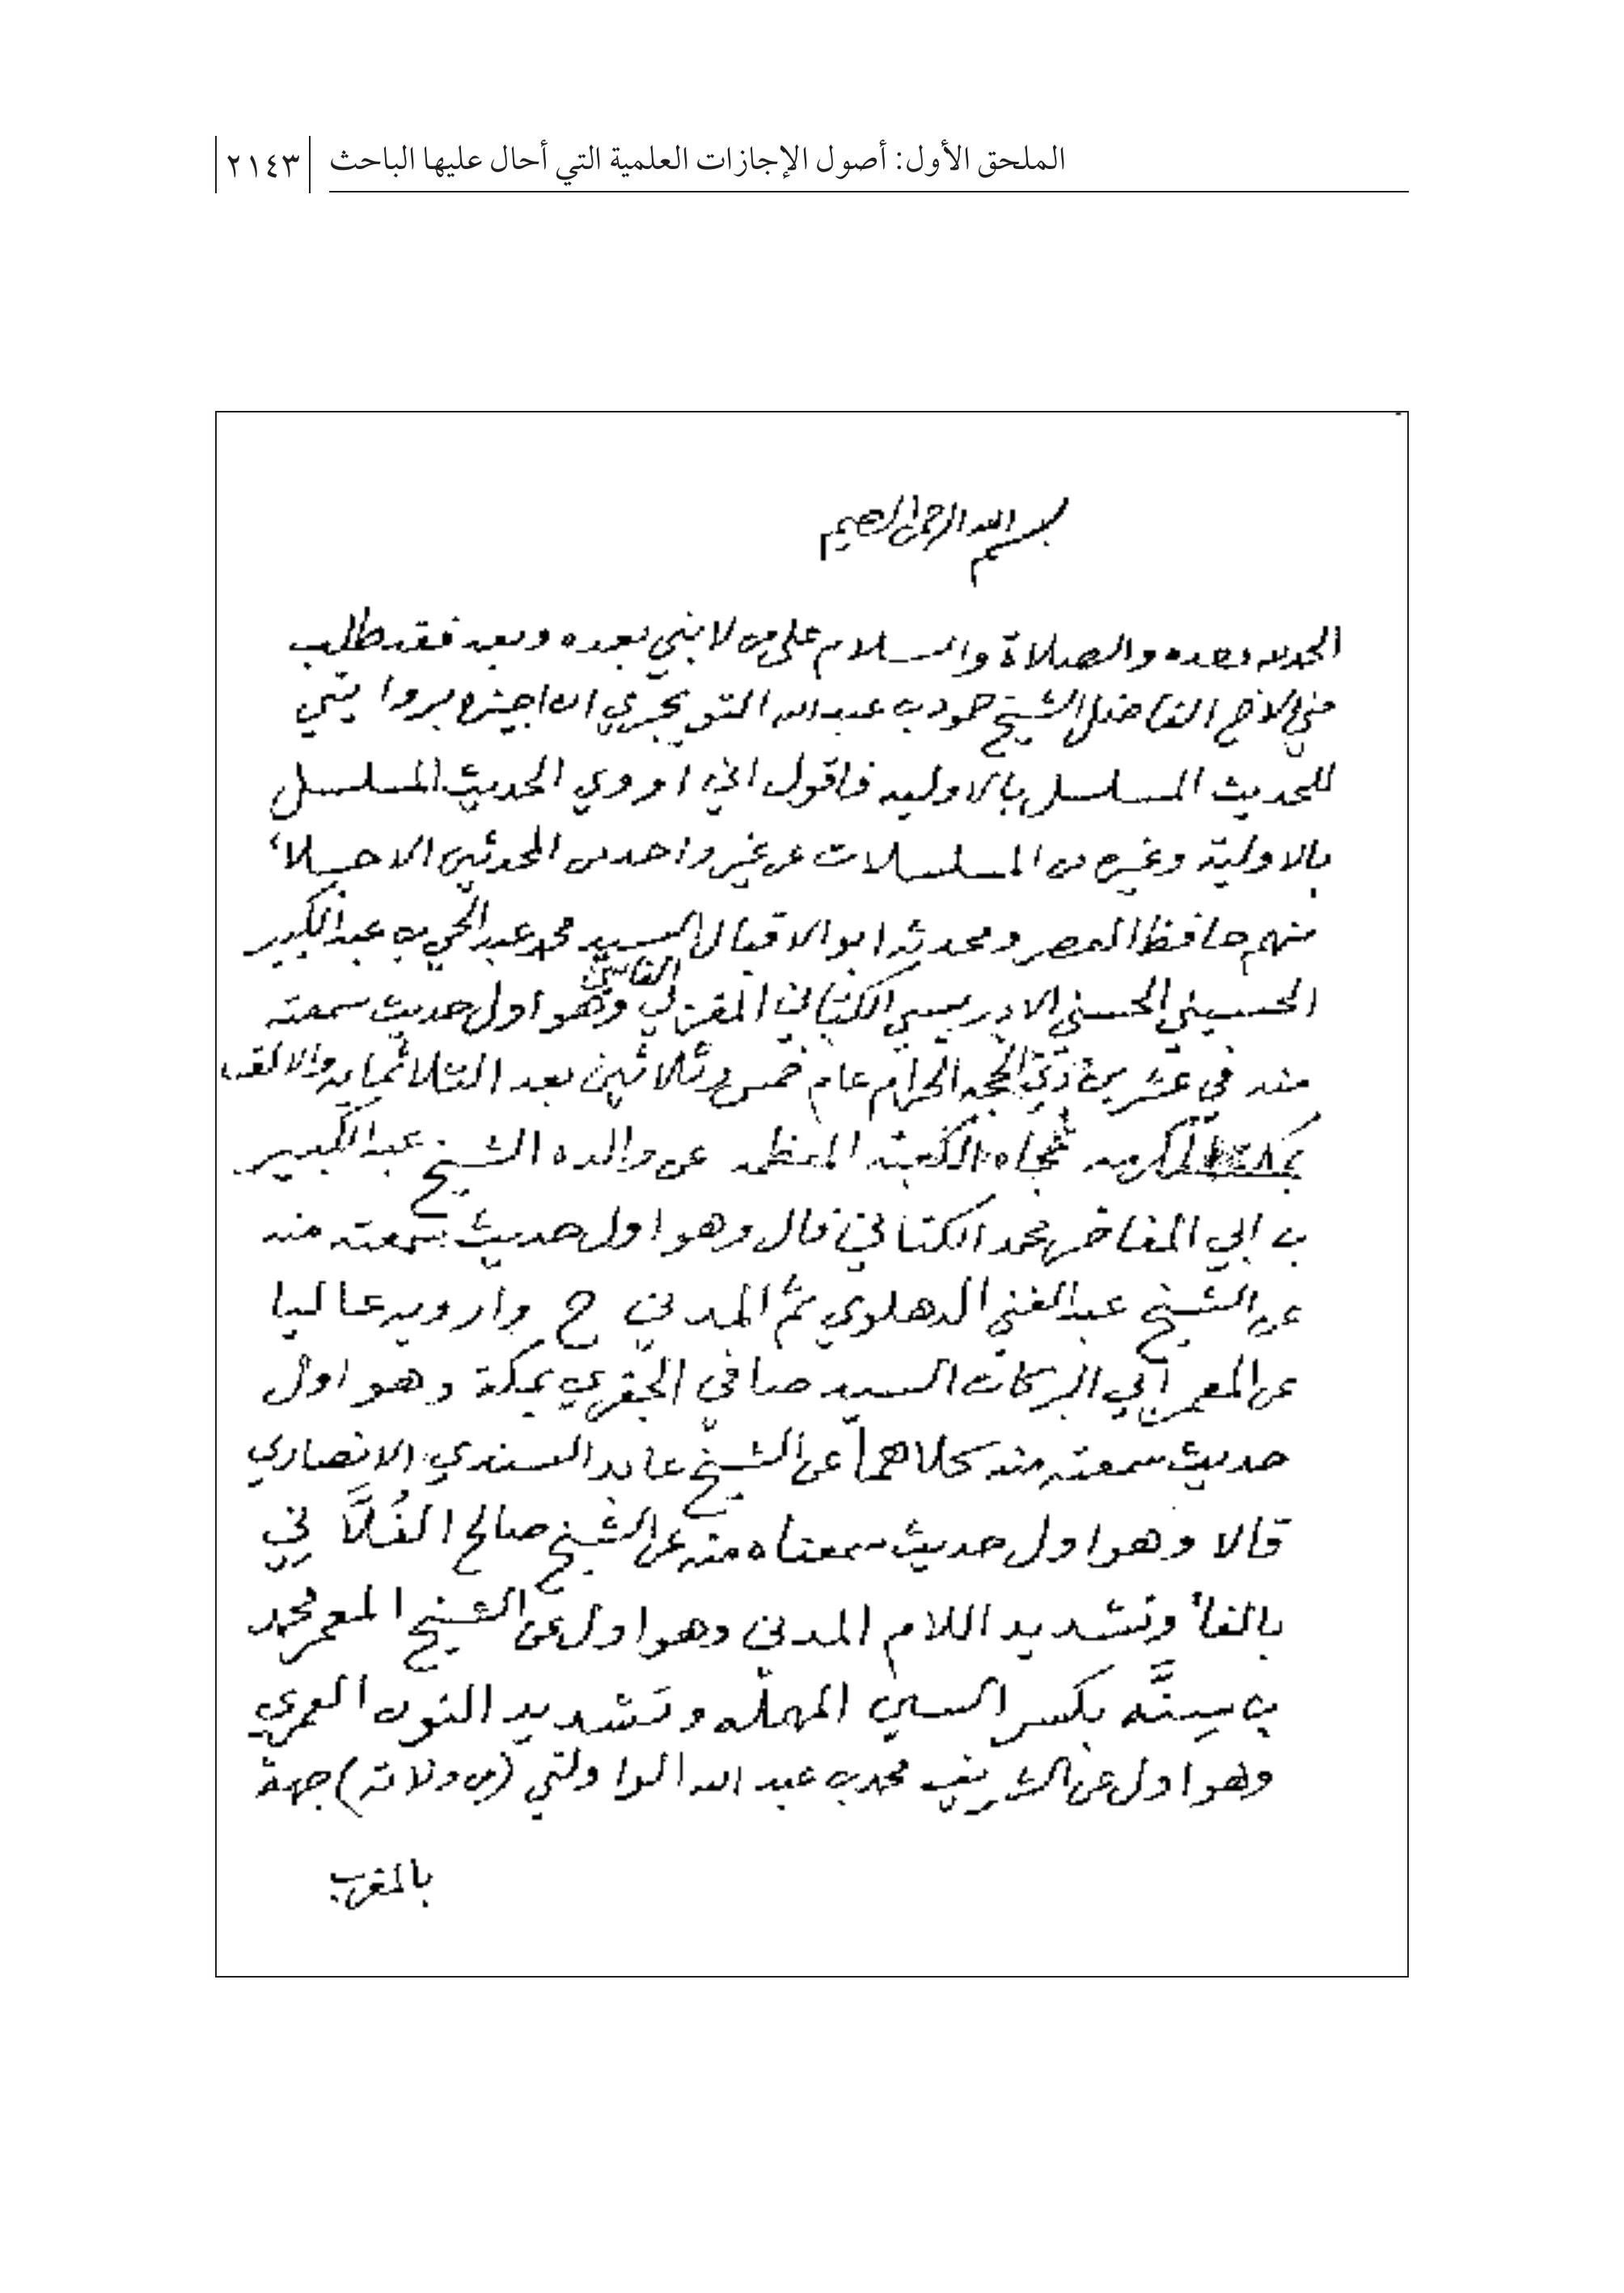 الملحق الأول: أصول الإجازات العلمية التي أحال عليها الباحث ٢١٤٣
بسم الله الرحمن الرحيم
الحمد لله وحده والصلاة والسلام على من لا نبي بعده وبعد فقد طلب
مني الاخ الفاضل الشيخ حمود بن عبد الله التويجري ان اجيزه بروايتي
للحديث المسلسل بالاوليه فاقول اني اروي الحديث المسلسل
بالاولية وغيره من المسلسلات عن غير واحد من المحدثين الاجلاء
منهم حافظ العصر ومحدثه ابو الاقبال السيد محمد عبد الحي بن عبد الكبير
الحسيني الحسني الادريسي الكتاني المغربي الفاسي وهو اول حديث سمعته
منه في عشرين ذي الحجه الحرام عام خمس وثلاثين بعد الثلاثمايه والالف
بمكة المكرمه تجاه الكعبة المعظمه عن والده الشيخ عبد الكبير
بن ابي المفاخر محمد الكتاني قال وهو اول حديث سمعته منه
عن الشيخ عبد الغني الدهلوي ثم المدني ح وارويه عاليا
عن المعمر ابي البركات السيد صافي الجفري بمكة وهو اول
حديث سمعته منه كلاهما عن الشيخ عابد السندي الانصاري
قالا وهو اول حديث سمعناه منه عن الشيخ صالح الفُلَّاني
بالفاء وتشديد اللام المدني وهو اول عن الشيخ المعمر محمد
بن سِنَّه بكسر السين المهمله وتشديد النون العمري
وهو اول عن الشريف محمد بن عبد الله الولاتي (من ولاته) جهة
بالمغرب